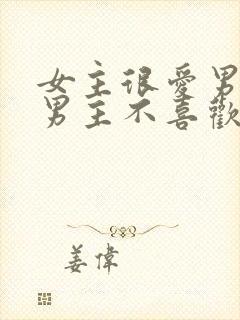 女主很愛男
男主不喜歡
姜偉